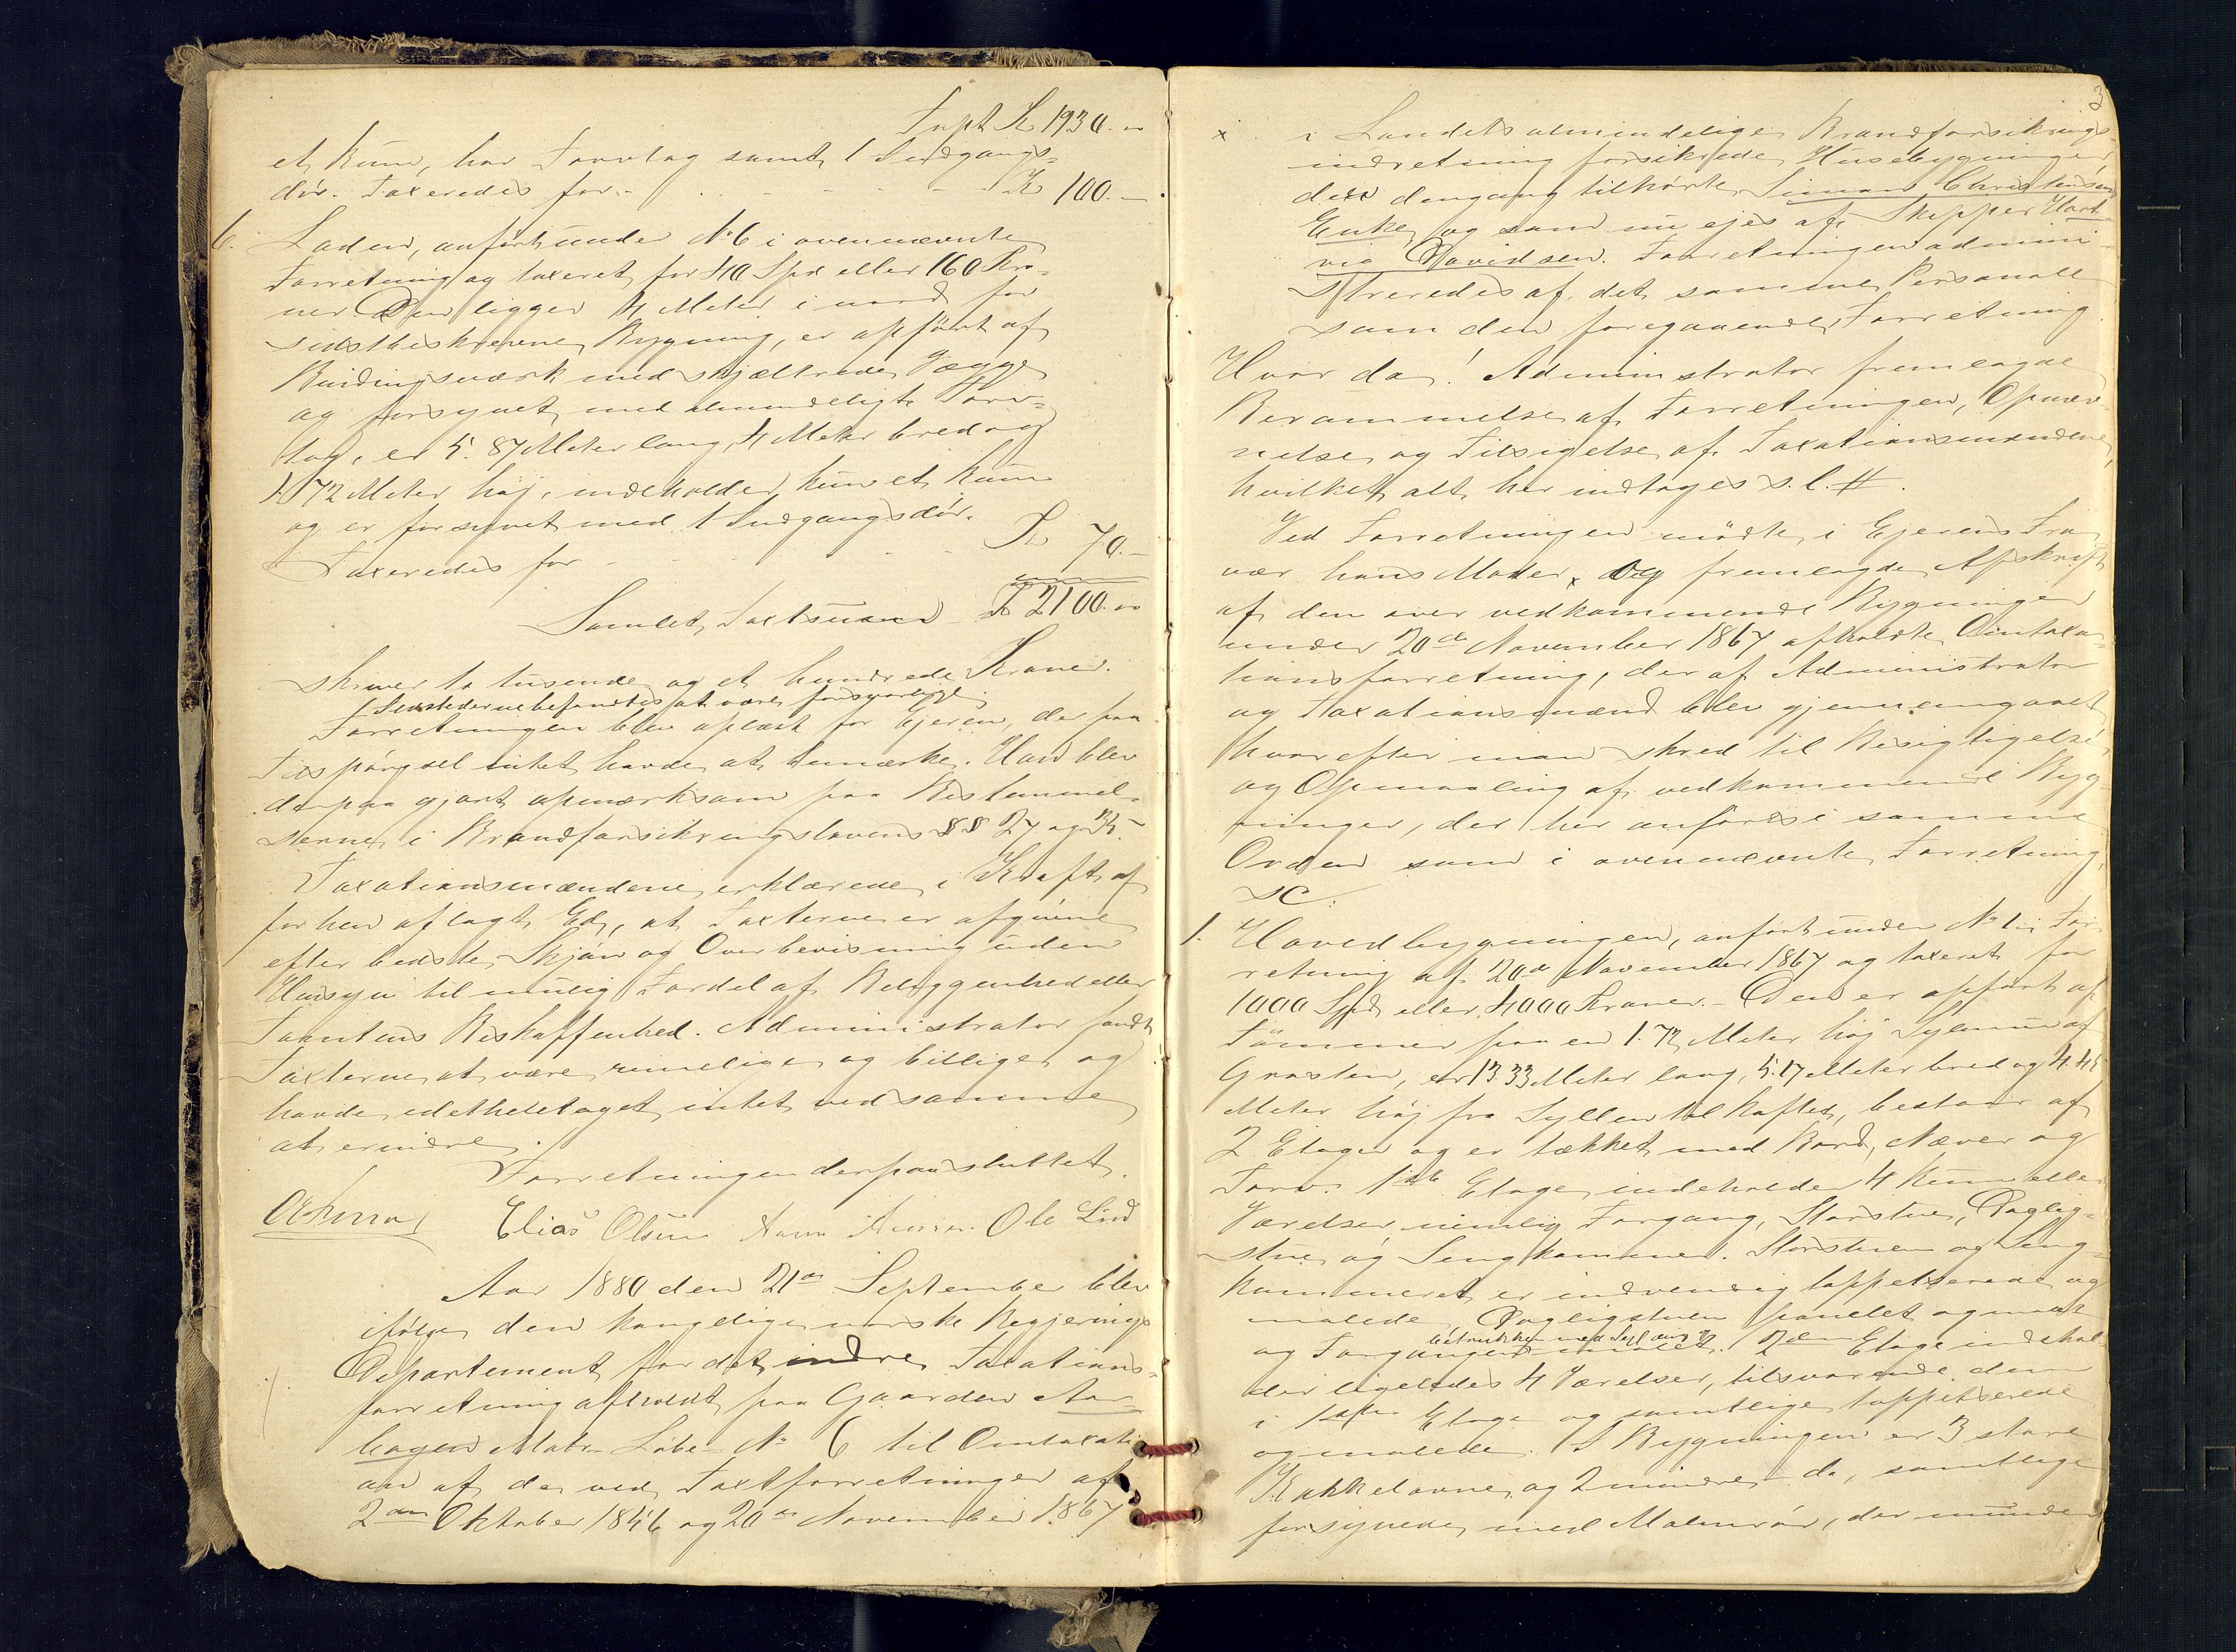 Trspt Kr 1930.„
et Rum, har Torvtag samt 1 Indgangs=
dör. Taxeredes for - - - - - - Kr 100.–
6. Laden, anført under No 6 i ovennævnte
Forretning og taxeret for 40 Spd eller 160 Kro=
ner. Den ligger 4 Meter i nord for
sidstbeskrevne Bygning, er opført af
Bindingsværk med skjeltrede Vægge
og forsynet med almindeligt Torv=
tag, er 5.87 Meter lang, 4 Meter bred og
1.72 Meter høj, indeholder kun et Rum
og er forsynet med 1 Indgangsdör.
Taxeredes for - - - - Kr 70.–
Samlet Taxtsum Kr 2100.„
skriver to tusende og et hundrede Kroner.
Ildstederne befandtes at være forsvarlige.
Forretningen blev oplæst for Ejeren, der paa
Tilspörgsel intet havde at bemærke. Han blev
derpaa gjort opmærksom paa Bestemmel=
serne i Brandforsikringslovens §§ 27 og 35.
Taxationsmændene erklærede i Kraft af
forhen aflagt Ed, at Taxterne er afgivne
efter bedste Skjön og Overbevisning uden
Hensyn til mulig Fordel af Beliggenhed eller
Tomtens Beskaffenhed. Administrator fandt
Taxterne at være rimelige og billige og
havde idethele taget intet ved samme
at erindre.
Forretningen derpaa sluttet.
Elias Olsen Ole Lind
Aar 1880 den 21de September blev
ifølge den kongelige norske Regjerings
Departement for det indre Taxations=
forretning afholdt paa Gaarden Aar=
bogen Matr. Löbe No 6 til Omtaxati=
on af de ved Taxtforretninger af
2den Oktober 1846 og 20de November 1867
3
x i Landets almindelige Brandforsikrings=
indretning forsikrede Husebygninger
der dengang tilhörte Simon Christensens
Enke og som nu ejes af Skipper Hart=
vig Davidsen. Forretningen admini=
streredes af det samme Personale
som den foregaaende Forretning.
Hvor da! Administrator fremlagde
Berammelse af Forretningen, Opnæv=
nelse og Tilsigelse af Taxationsmændene,
hvilket alt her indtages s. l. #.
Ved Forretningen mödte i Ejerens Fra=
vær hans Moder, og fremlagde Afskrift
af den over vedkommende Bygninger
under 20de November 1867 afholdte Omtaxa=
tionsforretning, der af Administrator
og Taxationsmænd blev gjennemgaaet
hvorefter man skred til Besigtigelse
og Opmaaling af vedkommende Byg=
ninger, der her anføres i samme
Orden som i ovennævnte Forretning,
sc:
1. Hovedbygningen, anført under No 1 i For=
retning af 20de November 1867 og taxeret for
1000 Spd eller 4000 Kroner. – Den er opfört af
Tömmer paa en 1.72 Meter höj Sylmur af
Graasten, er 13.33 Meter lang, 5.17 Meter bred og 4.45
Meter höj fra Syllen til Raftet, bestaar af
2 Etager og er tækket med Bord, Næver og
Torv. 1ste Etage indeholder 4 Rum eller
Værelser, nemlig Forgang, Storstue, Daglig=
stue og Sengkammer. Storstuen og Seng=
kammeret er indvendig tappetserede og
malede, Dagligstuen panelet og malt
og Forgangen betrukken med Seildug. 2den Etage indehol=
der ligeledes 4 Værelser, tilsvarende dem
i 1ste Etage og samtlige tappetserede
og malede. I Bygningen er 3 store
Kakkelovne og 2 mindre do, samtlige
forsynede med Malmrör, der munder